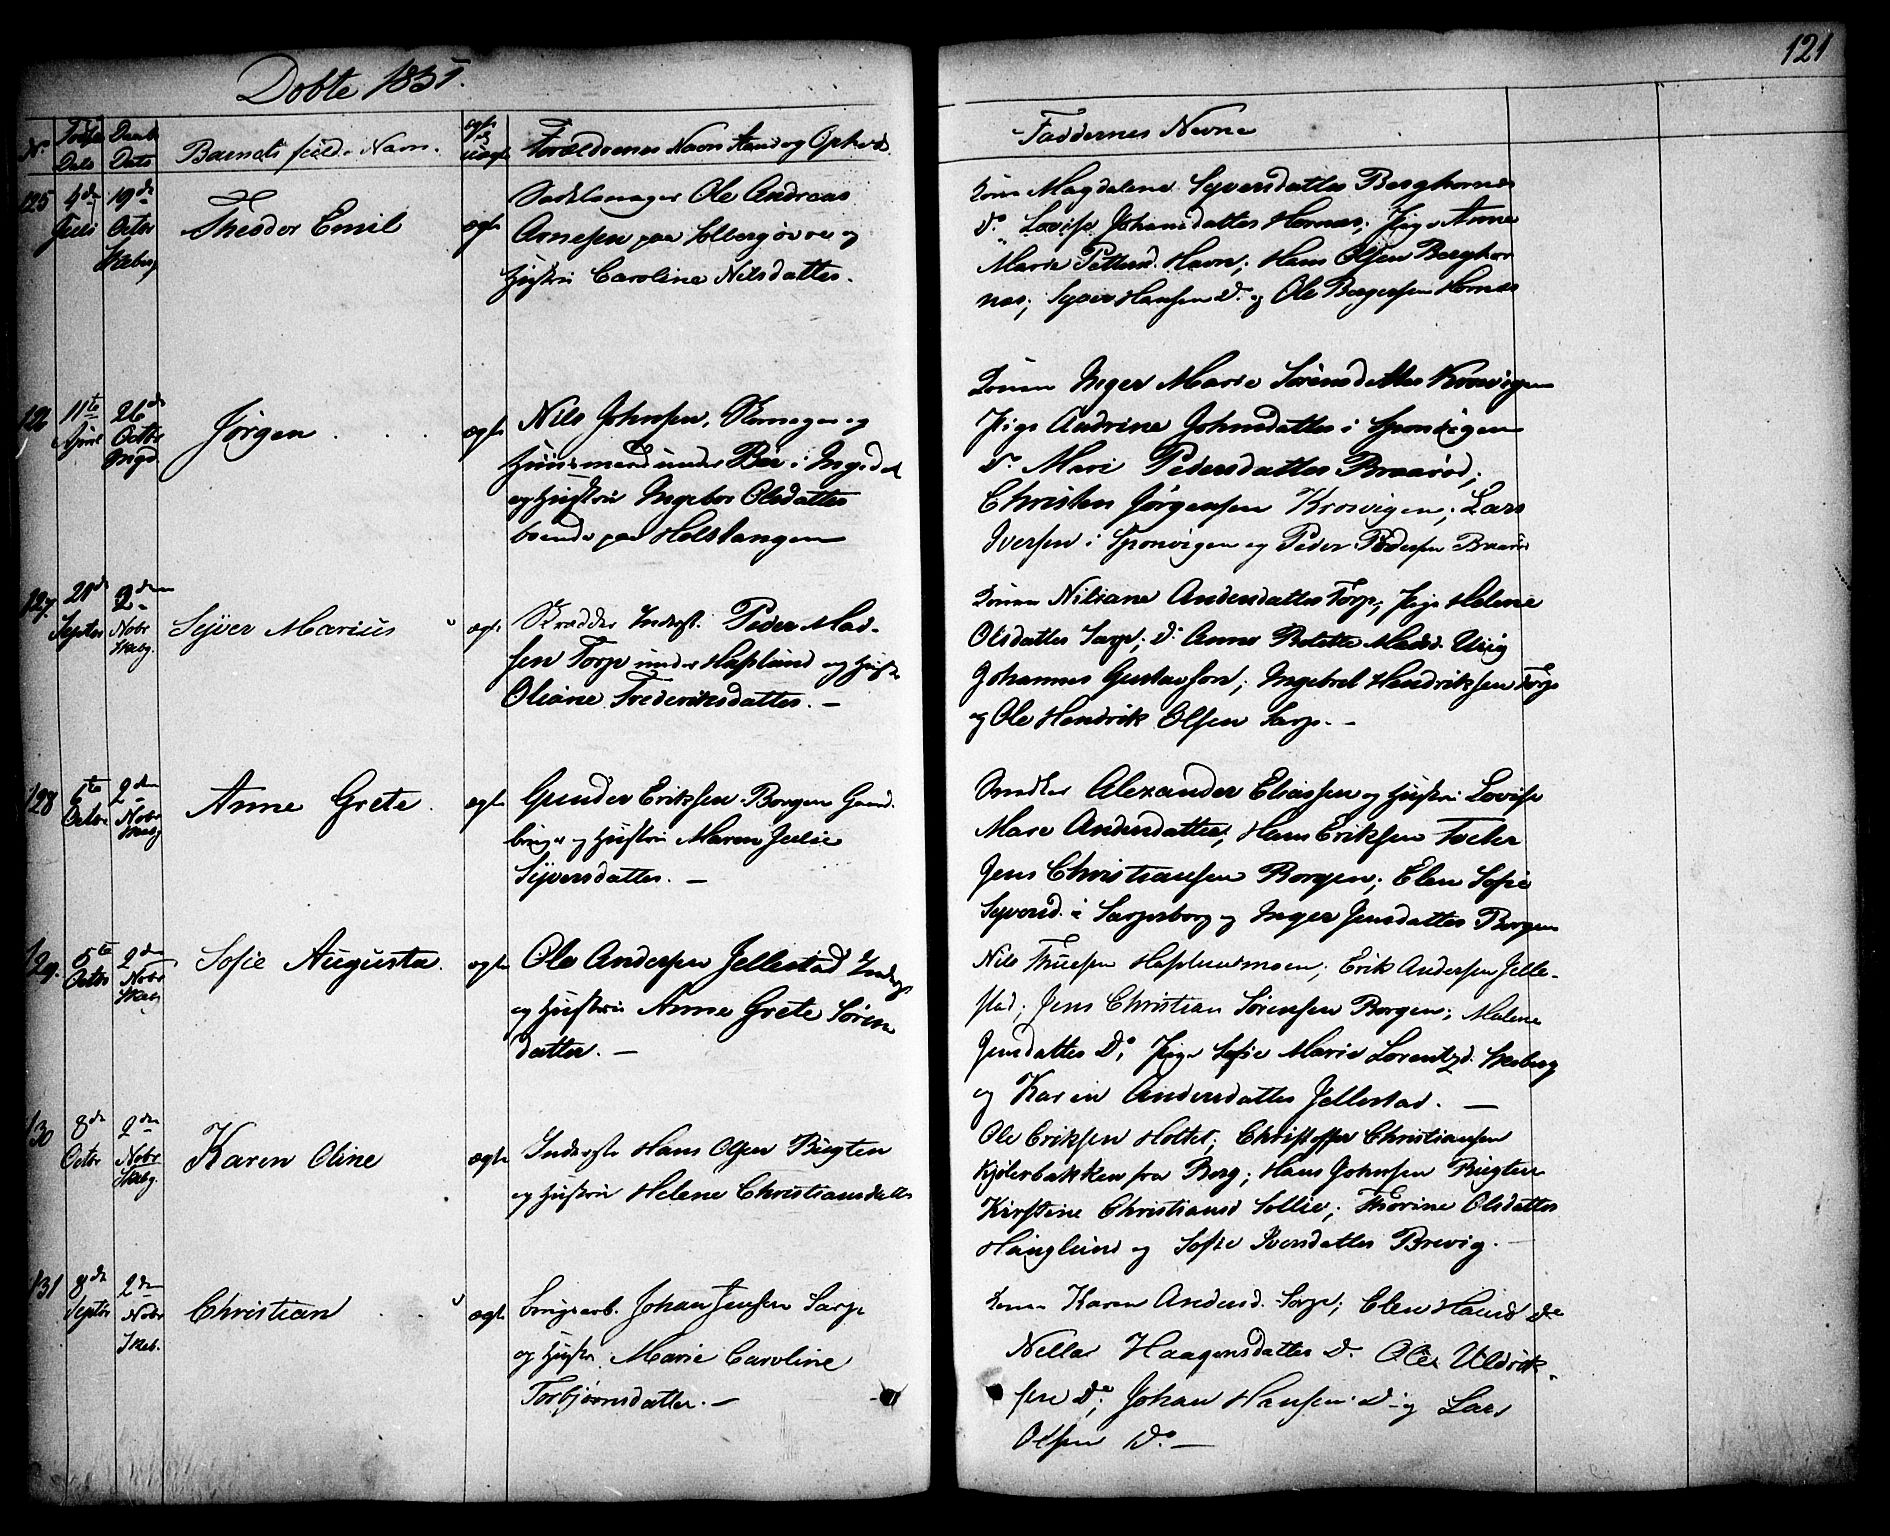 Døbte 1851.
121
No
Fødsels Dato
Daabs Dato
Barnets fulde Navn.
ægte el uægte
Forældrenes Navn Stand og Ophold.
Faddernes Nevne
125
4de Juli
19de Octbr Skeberg
Theodor Emil
ægte
Sadelmager Ole Andreas
Arnesen paa Solberg øvre og
Hustru Caroline Nilsdatter.
Konen Magdalene Syversdatter Berghornæs
Do. Lovise Johannsdatter Hornæs; Pige Anne
Marie Petters. Havn; Hans Olsen Berghor
næs; Syver Hansen Do. og Ole Børgersen Hornæs
126
11te April
26de Octbr Ingd.
Jørgen
ægte
Nils Johnsen, Skomager og
Huusmand under Bøe i Ingedal
og Hustru Ingebor Olsdatter
boende paa Holstangen
Konen Inger Marie Sørensdatter Krosvigen
Pige Andrine Johnsdatter i Sponvigen
Do. Mari Pedersdatter Braarød;
Christen Jørgensen Krosvigen; Lars
Iversen i Sponvigen og Peder Pedersen Braarød
127.
21de Septbr
2den Nobr Skebg.
Syver Marius
ægte
Skrædder Inderst. Peder Mad-
sen Torp under Haslund og Hustr
Oliane Frederiksdatter. —
Konen Niliane Andersdatter Torp; Pige Helene
Olsdatter Sarp; Do Anne Botette Madsd.
Johannes Gustavson; Ingebret Hendriksen Torp
og Ole Hendrik Olsen Sarp. —
128
1te Octbr
2den Nobr Skebg
Anne Grete.
ægte
Gunder Eriksen Borgen Gaard
bruger og Hustru Maren Julie
Syversdatter. —
Snedker Alexander Eliassen og Hustru Lovise
Mare Andersdatter; Hans Eriksen
Jens Christiansen Borgen; Elen Sofie
Syversd. i Sarpsborg og Inger Jensdatter Borgen
129.
5te Octbr
2den Nobr Skebg
Sofie Augusta.
ægte
Ole Andersen Jellestad Inderst
og Hustru Anne Grete Søren
datter. —
Nils Thuesen Haslundmoen; Erik Andersen Jelle-
stad; Jens Christian Sørensen Borgen; Malene
Jensdatter Do; Pige Sofie Marie Lorentzd. Skeberg
og Karen Andersdatter Jellestad. —
130
8de Octbr
2den Nobr Skebg.
Karen Oline
ægte
Inderste Hans Olsen Bugten
og Hustru Helene Christiansdatter
Ole Eriksen Holtet; Christoffer Christiansen
Kjølerbakken fra Borg; Hans Johnsen Bugten
Kirstine Christiansd Sollie; Thorine Olsdatter
Hauglund og Sofie Iversdatter Brevig. —
131
8de Septbr
2den Nobr Skeb.
Christian
ægte
Brugsarb. Johan Jensen Sarp
og Hustr. Marie Caroline
Torbjørnsdatter. —
Konen Karen Andersd. Sarp; Elen Hansd Do
Nella Haagensdatter Do. Ole Uldrik-
sen Do; Johan Hansen Do og Lars
Olsen Do. —